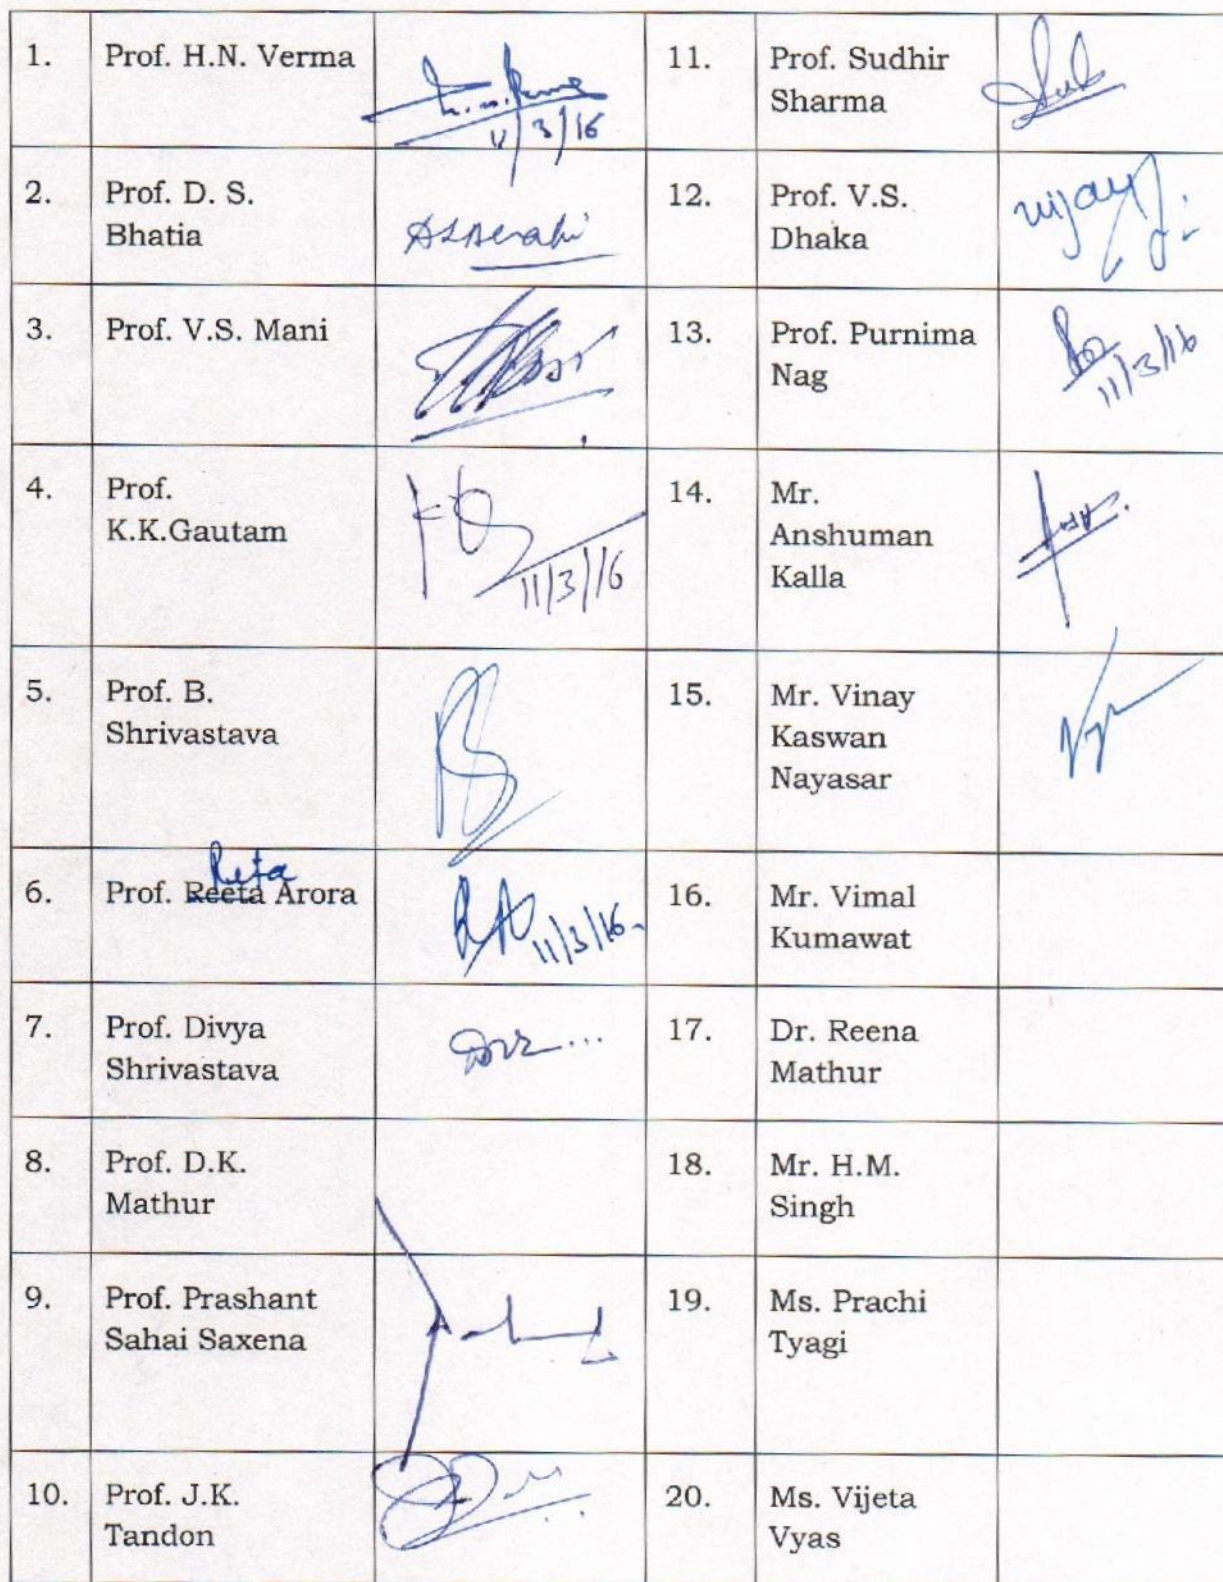 1.
Prof. H.N. Verma
11/3/16
11.
Prof. Sudhir
Sharma
2.
Prof. D. S.
Bhatia
12.
Prof. V.S.
Dhaka
vijay
3.
Prof. V.S. Mani
13.
Prof. Purnima
Nag
11/3/16
4.
Prof.
K.K.Gautam
11/3/16
14.
Mr.
Anshuman
Kalla
5.
Prof. B.
Shrivastava
15.
Mr. Vinay
Kaswan
Nayasar
Reta
6.
Prof. Reeta Arora
RA 11/3/16.
16.
Mr. Vimal
Kumawat
7.
Prof. Divya
Shrivastava
17.
Dr. Reena
Mathur
8.
Prof. D.K.
Mathur
18.
Mr. H.M.
Singh
9.
Prof. Prashant
Sahai Saxena
19.
Ms. Prachi
Tyagi
10.
Prof. J.K.
Tandon
20.
Ms. Vijeta
Vyas